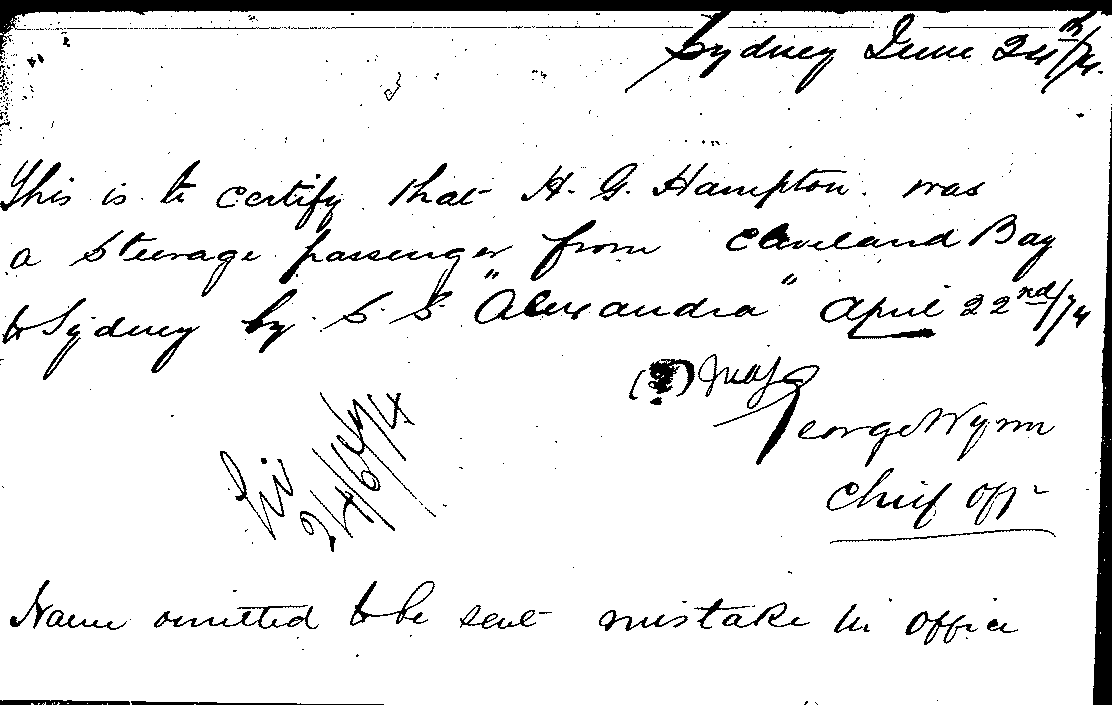 Sydney June 24th/74.
This is to certify that H. G. Hampton was
a Steerage passenger from Cleveland Bay
to Sydney by S. S. "Alexandra" April 22nd/74
George Wynn
Chief Off
24/6/74
Name omitted to be sent mistake in office